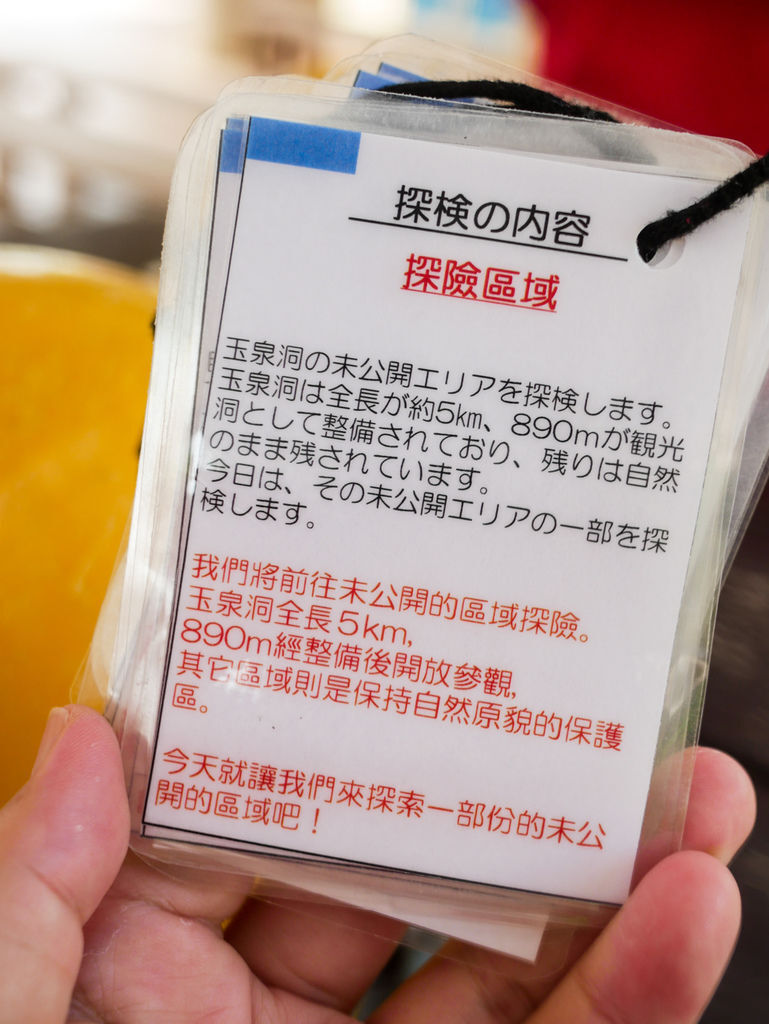 探検の内容
探險區域
玉泉洞の未公開エリアを探検します。
玉泉洞は全長が約5㎞、890mが観光
洞として整備されており、残りは自然
のまま残されています。
今日は、その未公開エリアの一部を探
検します。
我們將前往未公開的區域探險。
玉泉洞全長５km,
890m經整備後開放參觀,
其它區域則是保持自然原貌的保護
區。
今天就讓我們來探索一部份的未公
開的區域吧！